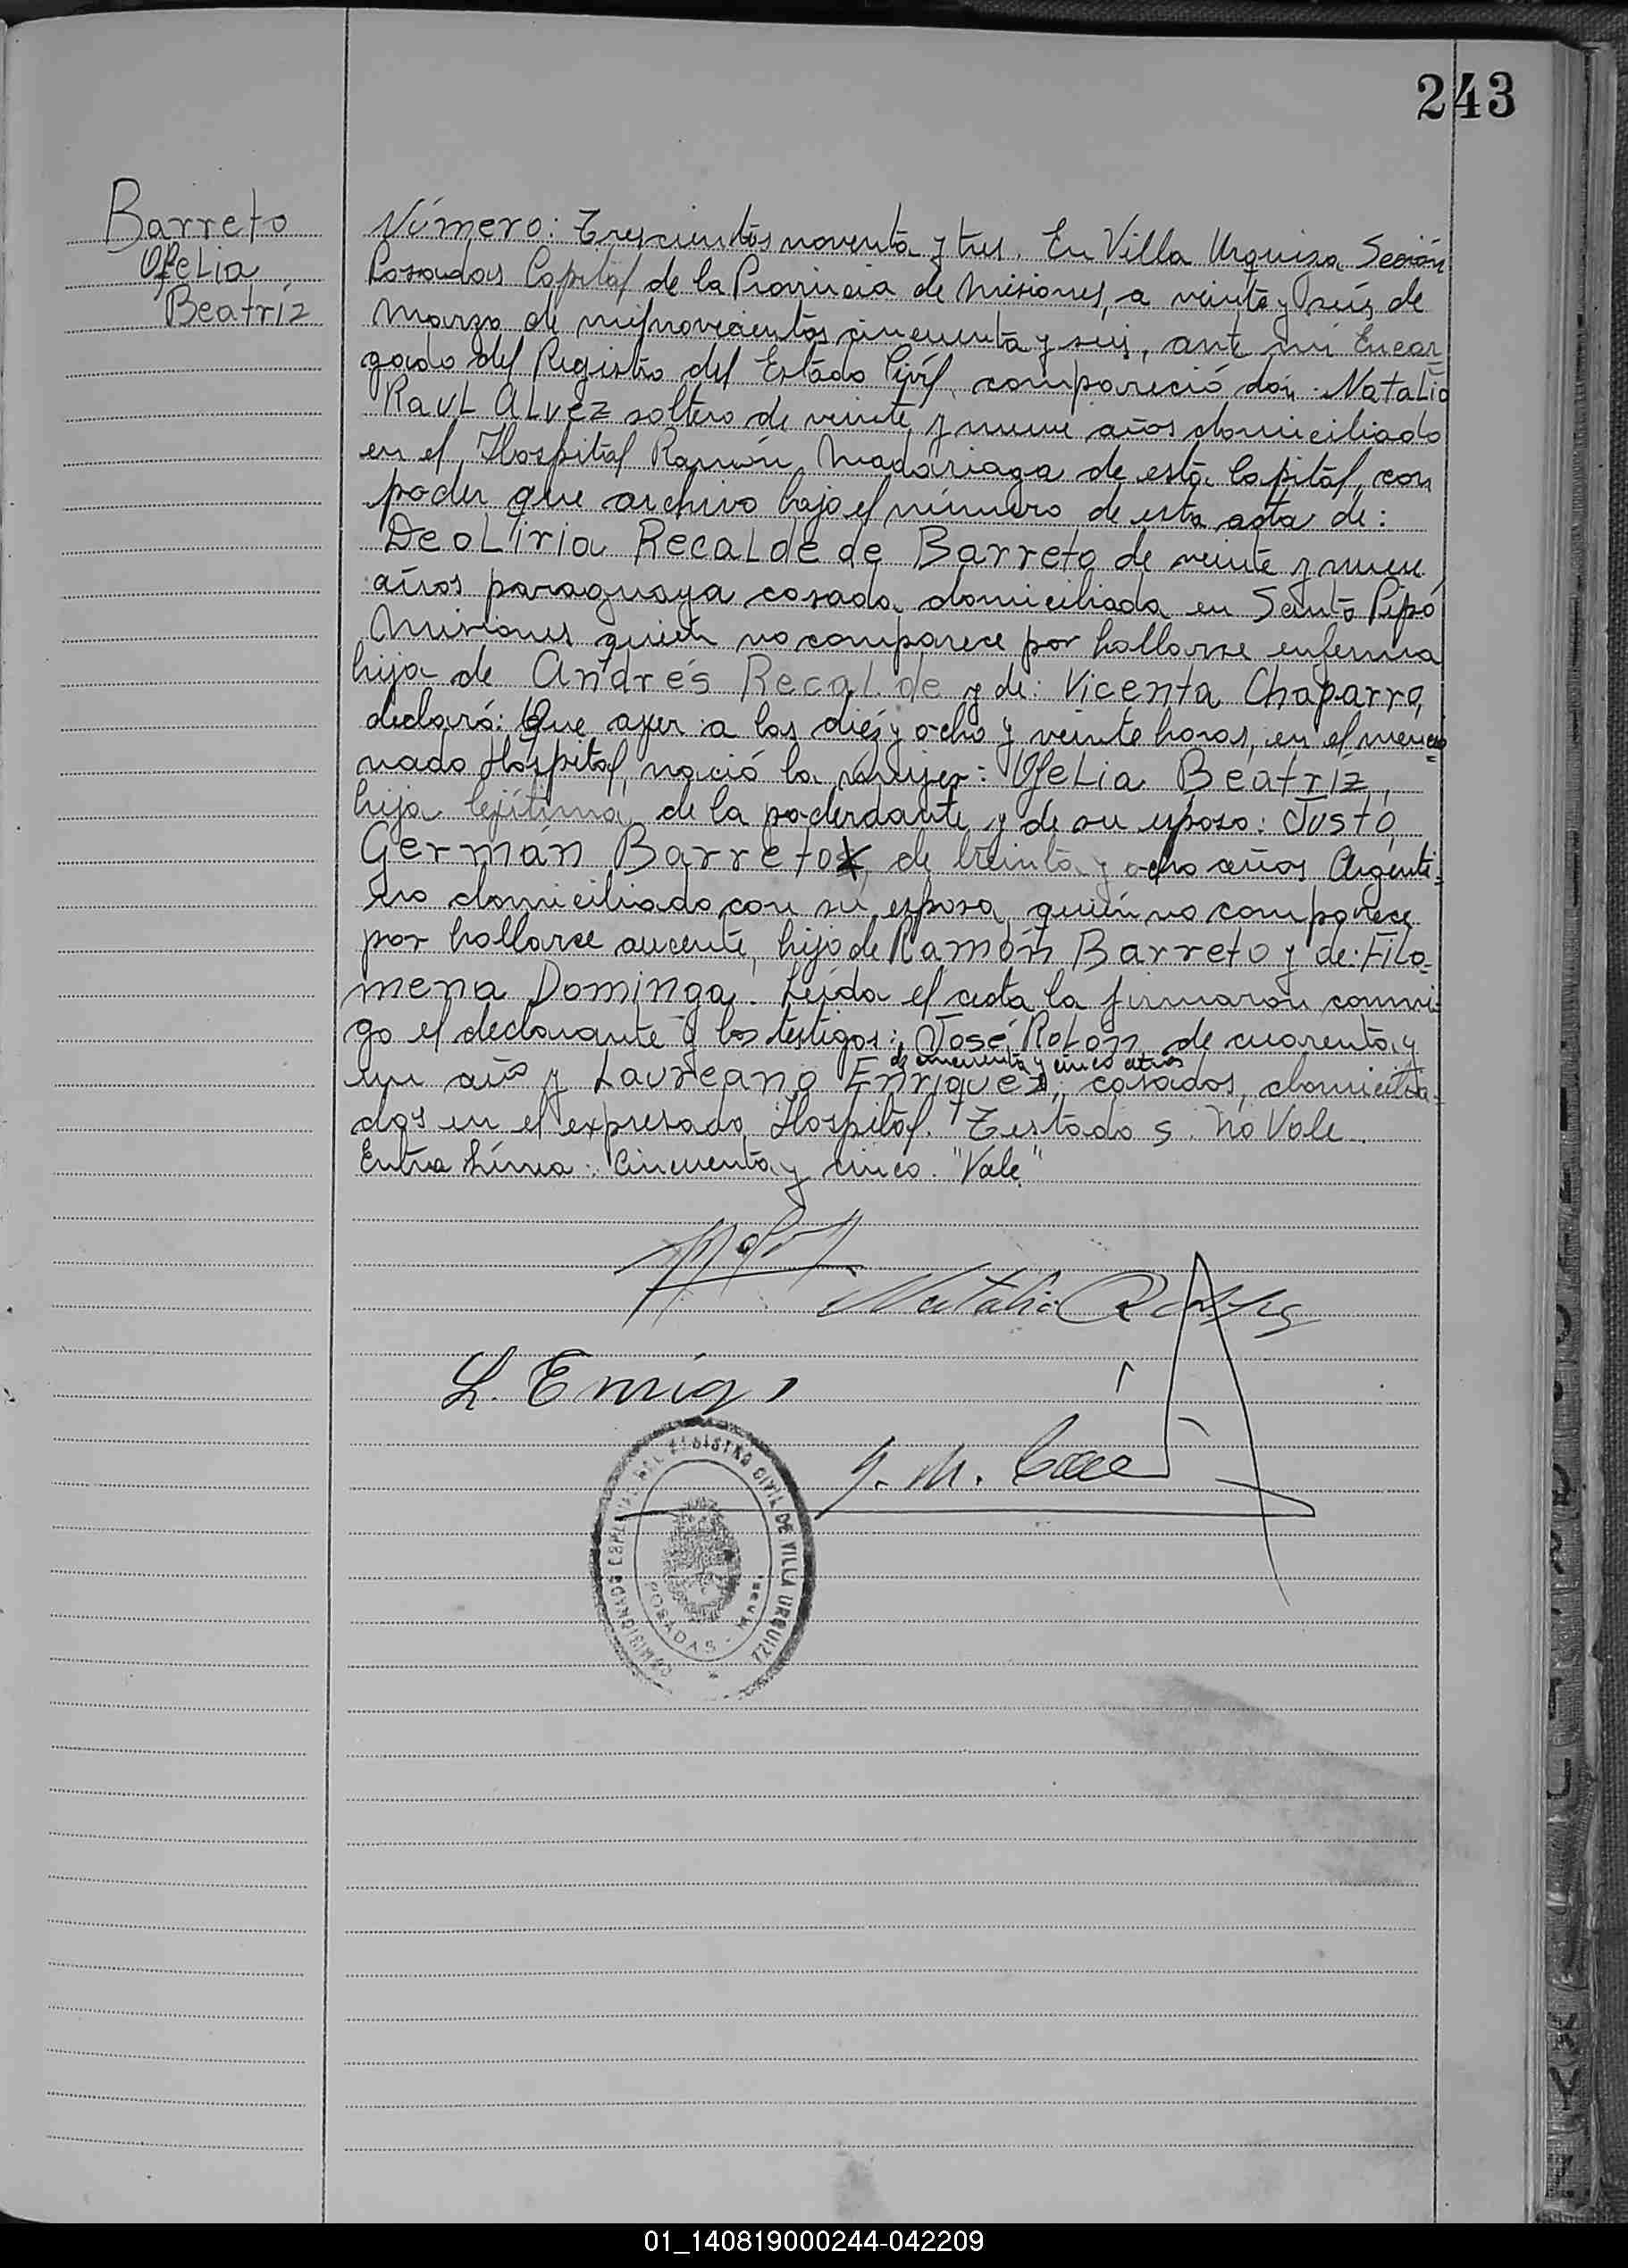 243
Barreto
Ofelia
Beatríz
Número: Trescientos noventa y tres. En Villa Urquiza Sección
Posadas Capital de la Provincia de Misiones, a veinte y seis de
Marzo de mil novecientos cincuenta y seis, ante mi Encar
gado del Registro del Estado Civíl, compareció don: Natalio
Raul Alvez soltero de veinte y nueve años domiciliado
en el Hospital Ramón Madariaga de esta Capital, con
poder que archivo bajo el número de esta acta de:
Deoliria Recalde de Barreto de veinte y nueve
años paraguaya casada domiciliada en Santo Pipó
Misiones quien no comparece por hallarse enferma
hija de Andrés Recalde y de: Vicenta Chaparro,
declaró: Que ayer a las diéz y ocho y veinte horas, en el mencio=
nado Hospital, nació la mujer: Ofelia Beatríz,
hija lejítima de la poderdante y de su esposo: Justo
Germán Barreto, de treinta y ocho años Argenti=
no domiciliado con su esposa quien no comparece
por hallarse aucente, hijo de Ramón Barreto y de: Filo=
mena Dominga. Leída el acta la firmaron conmi
go el declarante y los testigos: José Rolon de cuarenta y
de cincuenta y cinco años
un año y Laureano Enriquez; casados, domicilia=
dos en el expresado Hospital. Testado s. No Vale.
Entra Línea: Cincuenta y cinco. "Vale"
Natalio R
L. Enriq
J. M.
REGISTRO CIVIL DE VILLA URQUIZA
POSADAS - Mnes.
01_140819000244-042209